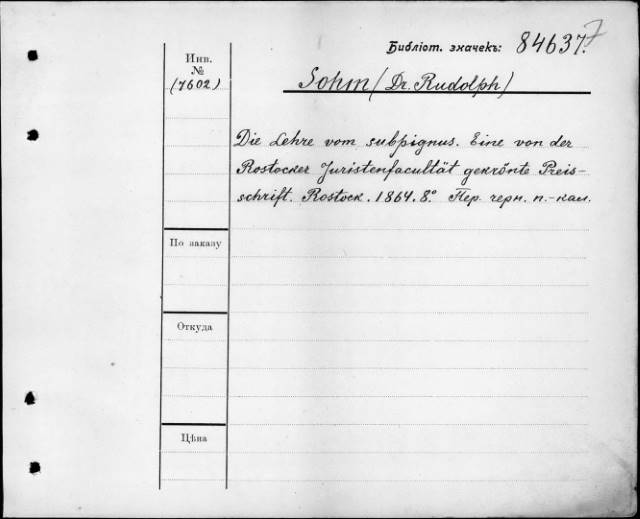 Библіот. значекъ: 84637.
Инв.
№
(7602)
Sohm (Dr. Rudolph)
Die Lehre vom subpignus. Eine von der
Rostocker Juristenfacultät gekrönte Preis-
schrift. Rostock. 1864. 8º. Пер. черн. п.-кал.
По заказу
Откуда
Цѣна